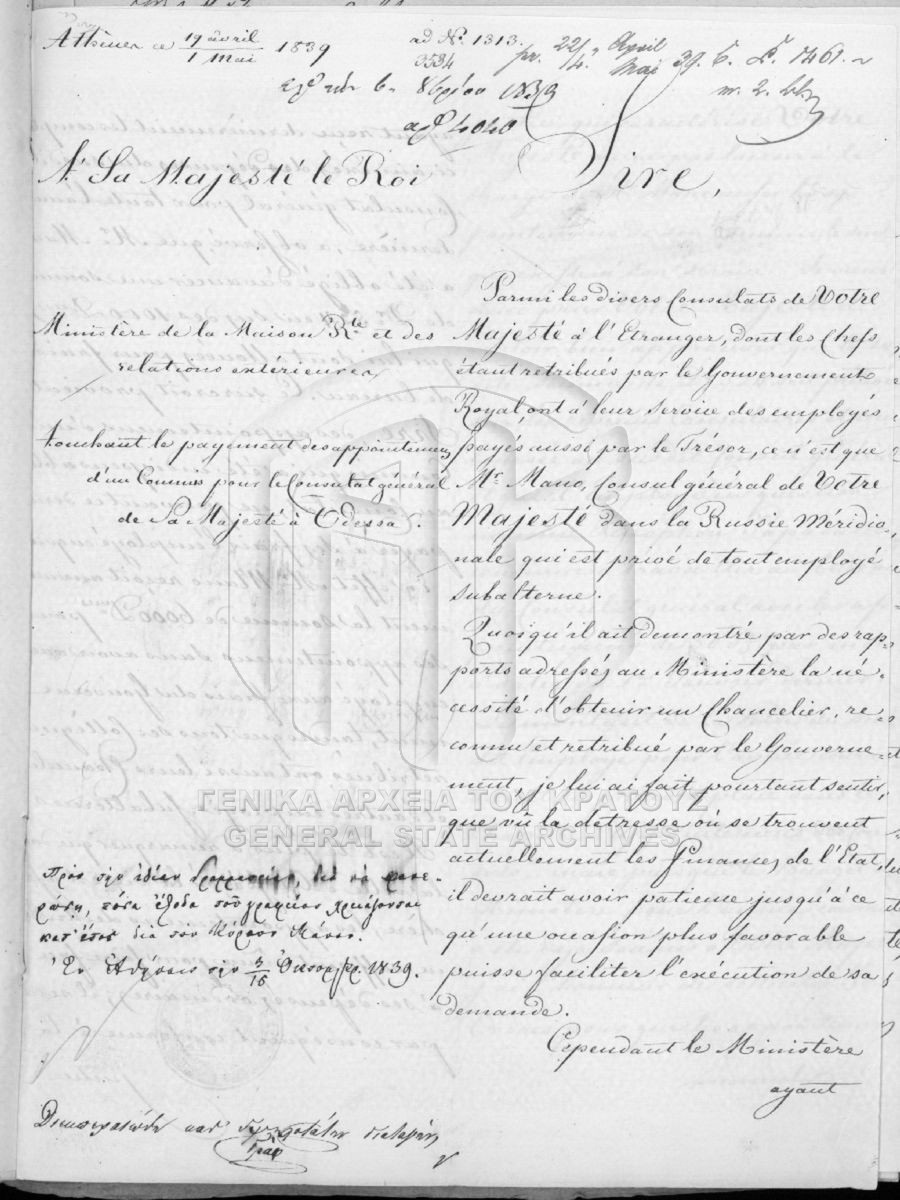 Athènes ce 19 avril / 1 Mai 1839
ad No. 1313.
3534
pr. 22/4. April Mai 39.
1839
4040
A Sa Majesté le Roi
Sire,
Ministère de la Maison Rle et des
relations extérieures
touchant le payement des appointemens
d'un Commis pour le Consulat général
de Sa Majesté à Odessa.
Parmi les divers Consulats de Votre
Majesté à l'Etranger, dont les Chefs
étant retribués par le Gouvernement
Royal, ont à leur service des employés
payés aussi par le Trésor, ce n'est que
Mr. Mano, Consul général de Votre
Majesté dans la Russie Méridio-
nale qui est privé de tout employé
subalterne.
Quoiqu'il ait demontré par des rap-
ports adressés au Ministère la né-
cessité d'obtenir un Chancelier, re-
connu et retribué par le Gouverne-
ment, je lui ai fait pourtant sentir,
que vû la détresse où se trouvent
actuellement les finances de l'Etat,
il devrait avoir patience jusqu'à ce
qu'une occasion plus favorable
puisse faciliter l'exécution de sa
demande.
Cependant le Ministère
ayant
Πρὸς τὴν ἰδίαν Γραμματείαν, διὰ νὰ φανε-
ρώσῃ, πόσα ἔξοδα τοῦ γραφείου χρειάζονται
κατ' ἔτος διὰ τὸν Κύριον Μάνον.
Ἐν Ἀθήναις τὴν 3/15 Ὀκτωμβρ. 1839.
ΓΕΝΙΚΑ ΑΡΧΕΙΑ ΤΟΥ ΚΡΑΤΟΥΣ
GENERAL STATE ARCHIVES